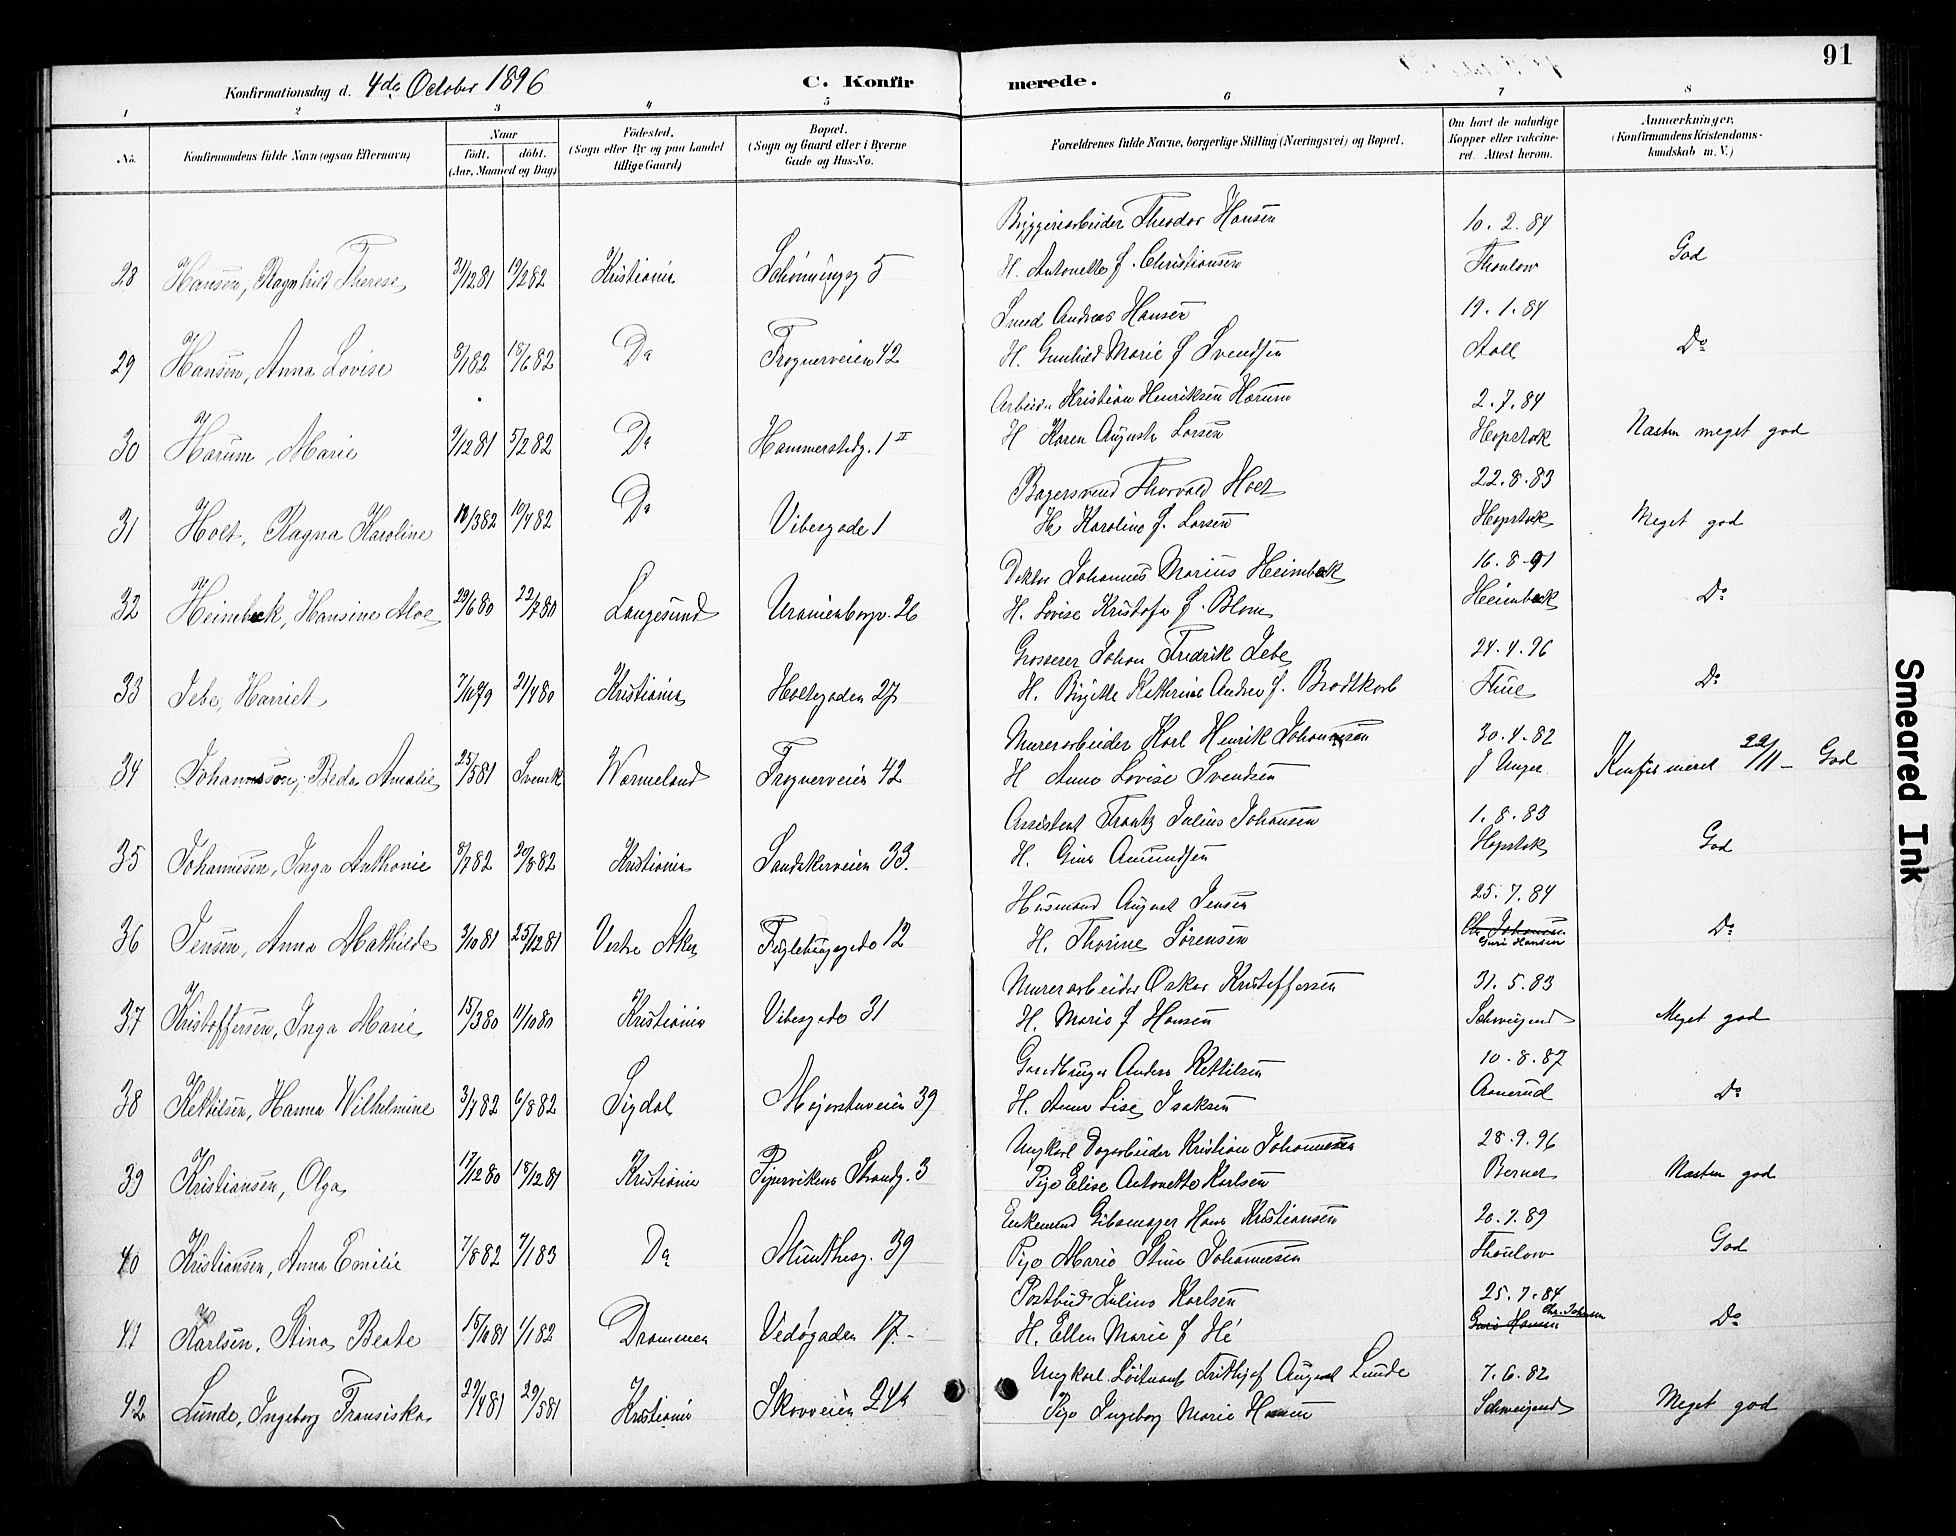 91
Konfirmationsdag d. 4de October 1896
C. Konfir merede.
1 2 3 4 5 6 7 8
No.
Konfirmandens fulde Navn (ogsaa Efternavn)
Naar
födt. döbt.
(Aar, Maaned og Dag)
Födested.
(Sogn eller By og paa Landet
tillige Gaard)
Bopæl.
(Sogn og Gaard eller i Byerne
Gade og Hus-No.
Forældrenes fulde Navne, borgerlige Stilling (Næringsvei) og Bopæl.
Om havt de naturlige
Kopper eller vakcine-
ret. Attest herom.
Anmærkninger.
(Konfirmandens Kristendoms-
kundskab m. V.)
Bryggeriarbeider Theodor Hansen 10.2.84
28 Hansen, Ragnhild Therese 31/12 81 19/2 82 Kristiania Schønningsg 5 H. Antonette f. Christiansen Thaulow God
Smed Andreas Hansen 19.1.84
29 Hansen, Anna Lovise 8/1 82 18/6 82 Do Frognerveien 42 H. Gunhild Marie f Svendsen Aall Do
Arbeid. Kristian Henriksen Harum 2.7.84
30 Harum, Marie 9/12 81 5/2 82 Do Hammerstadg. 1 II H Karen Augusta Larsen Hopstock Næsten meget god
Bagersvend Thorvald Holt 22.8.83
31 Holt, Ragna Karoline 10/4 82 Do Vibesgade 1 H. Karoline f. Larsen Hopstock Meget god
Doktor Johannes Marius Heimbeck 16.8.91
32 Heimbeck, Hansine 29/6 80 22/7 80 Langesund Uranienborgv. 26 H. Lovise Kristofa f. Blom Heimbeck Do
Grosserer Johan Fredrik Jebe 24.4.96
33 Jebe, Harriet 7/11 79 21/4 80 Kristiania Holtegaden 27 H. Birgitte Kathrine Andrea f. Brodtkorb Thue Do
Murerarbeider Karl Henrik Johannesen 30.4.82
34 Johannsson, Beda Amalie 25/5 81 Svensk Warmeland Frognerveien 42 H Anna Lovise Svendsen J Unger Konfirmeret 22/11 - God
Assistent Frantz Julius Johansen 1.8.83
35 Johannesen, Inga Anthonie 8/7 82 20/8 82 Kristiania Sandakerveien 33. H. Gina Amundsen Hopstock God
Husmand August Jensen 25.7.84
36 Jensen, Anna Mathilde 3/10 81 25/12 81 Vestre Aker Fuglehauggade 12 H. Thorine Sørensen Chr. Johansen Guri Hansen Do
Murerarbeider Oskar Kristoffersen 31.5.83
37 Kristoffersen, Inga Marie 15/3 80 11/10 80 Kristiania Vibesgade 31 H. Marie f Hansen Schweigaard Meget god
Gaardbruger Anders Kettilsen 10.8.87
38 Kettilsen, Hanna Wilhelmine 3/7 82 6/8 82 Sigdal Majorstuveien 39 H. Anne Lise Isaksen Aanerud Do
Ungkarl Dagarbeider Kristian Johannesen 28.9.96
39 Kristiansen, Olga 17/12 80 18/12 81 Kristiania Pipervikens Strandg. 3 Pige Elise Antonette Karlsen Berner Næsten god
Enkemand Gibsmager Hans Kristiansen 20.7.89
40 Kristiansen, Anna Emilie 7/8 82 7/1 83 Do Munthesg. 39 Pige Marie Stina Johannesen Thaulow God
Postbud Julius Karlsen 25.7.84
41 Karlsen, Stina Beate 15/10 81 1/1 82 Drammen Vedøgaden 17. H. Ellen Marie f Hé Guri Hansen Chr. Johansen Do
Ungkarl Løitnant Fridthjof August Lunde 7.6.82
42 Lunde, Ingeborg Fransiska 27/4 81 29/5 81 Kristiania Skovveien 24b Pige Ingeborg Marie Hansen Schweigaard Meget god
Smeared Ink